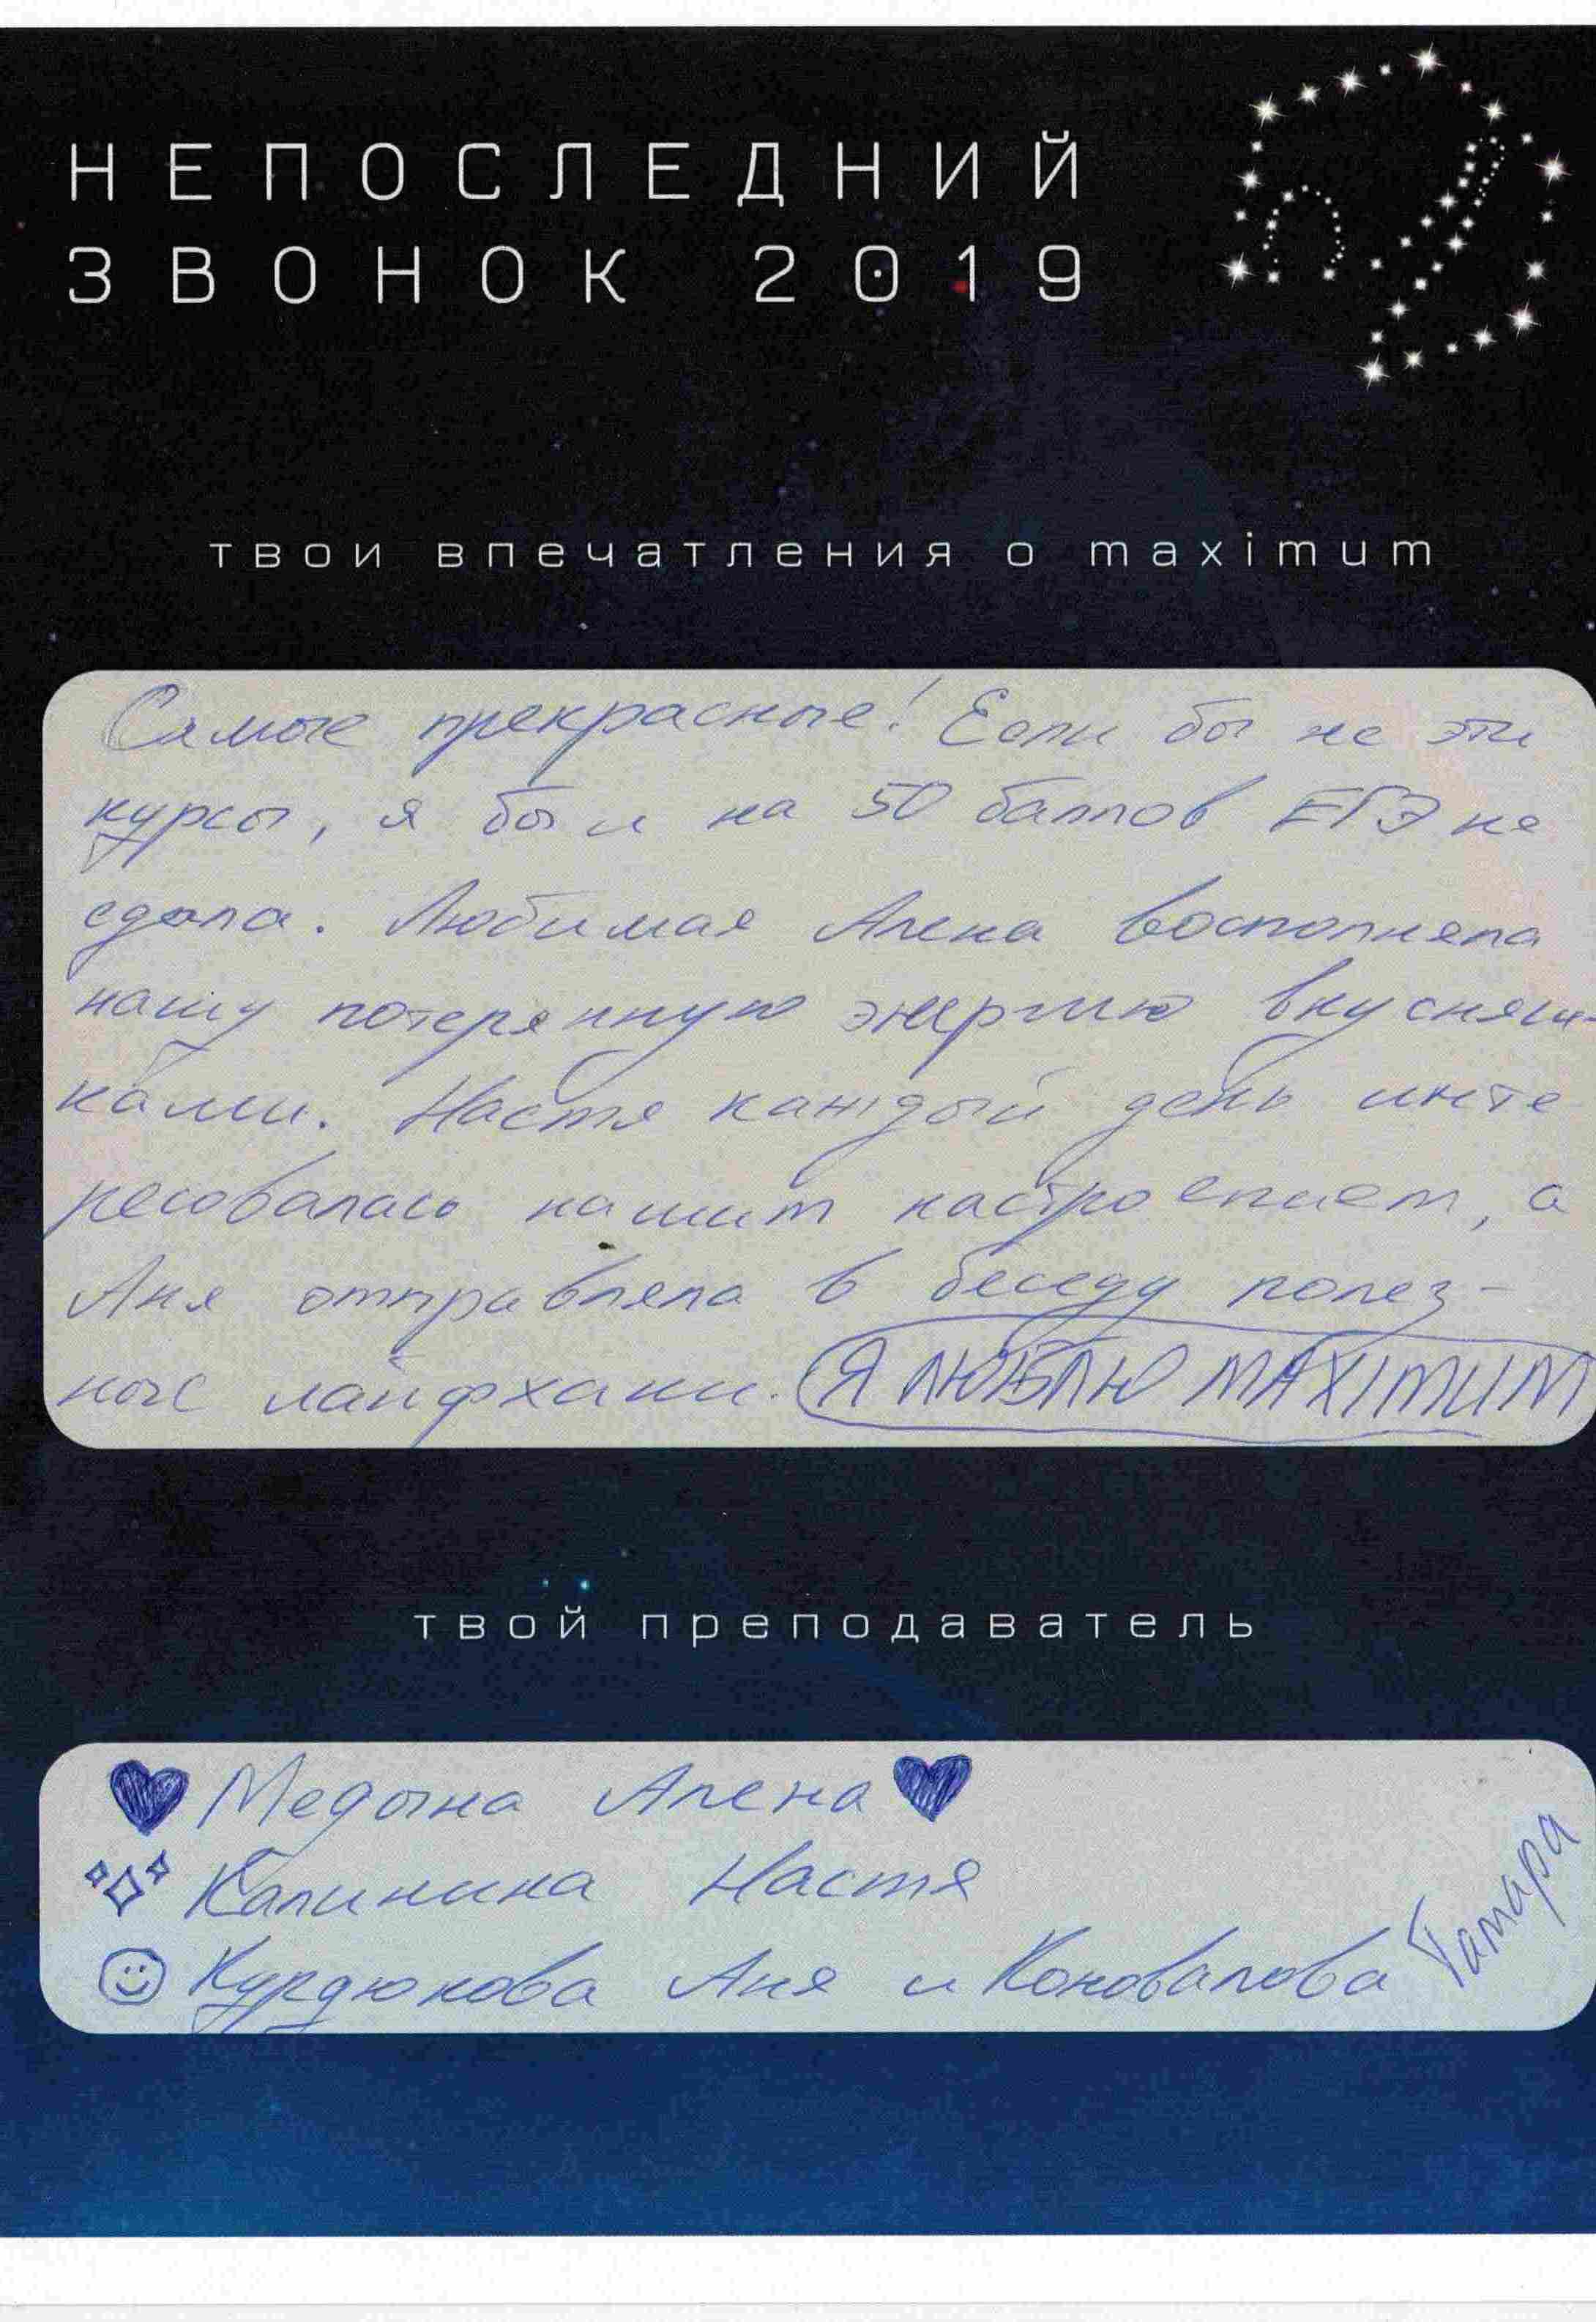 НЕПОСЛЕДНИЙ
ЗВОНОК 2019
твои впечатления о maximum
Самые прекрасные! Если бы не эти
курсы, я бы и на 50 баллов ЕГЭ не
сдала. Любимая Алена восполняла
нашу потерянную энергию вкусняш-
ками. Настя каждый день инте
ресовалась нашим настроением, а
Аня отправляла в беседу полез-
ные лайфхаки. Я ЛЮБЛЮ MAXIMUM
твой преподаватель
Медына Алена
Калинина Настя
Курдюкова Аня и Коновалова Тамара